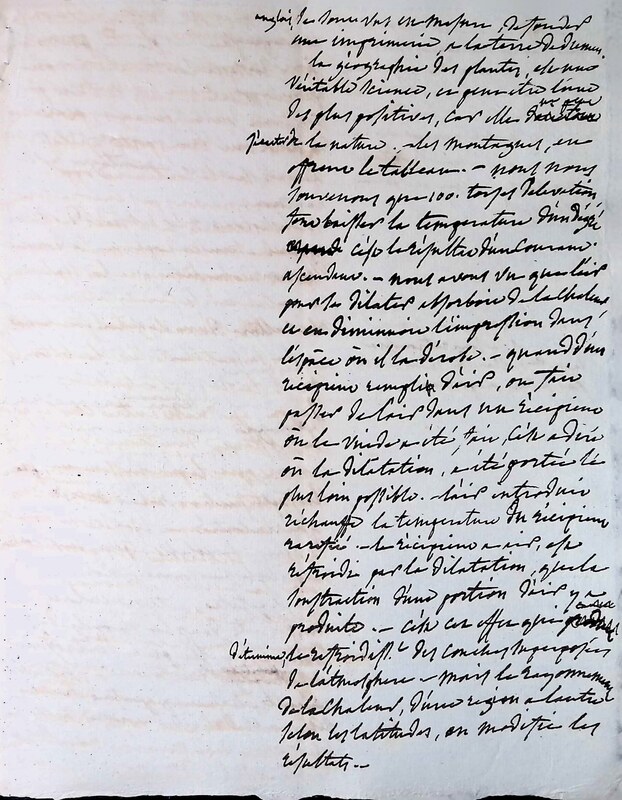 anglais, se sont vus en mesure, de fonder
une imprimerie, a la terre de diemen,
la géographie des plantes, est une
véritable science, et peut être l'une
des plus positives, car elle
de la nature. - les montagnes, en
offrent le tableau. - nous nous
souvenons que 100. toises d'élévation
font baisser la température d'un degré
c'est le résultat d'un courant
ascendant. - nous avons vu que l'air
pour se dilater absorboit de la chaleur
et en diminuoit l'impression dans
l'espace où il la dérobe. - quand d'un
récipient rempli d'air, on fait
passer de l'air dans un récipient
où le vuide a été fait, c'est a dire
où la dilatation, a été portée le
plus loin possible. - l'air introduit
réchauffe la température du récipient
rarefié - le récipient a air, est
refroidi par la dilatation, que la
soustraction d'une portion d'air y a
produite. - c'est cet effet qui
détermine, le refroidisst. des couches superposées
de l'atmosphere - mais le rayonnement
de la chaleur, d'une region a l'autre
selon les latitudes, en modifie les
résultats. -